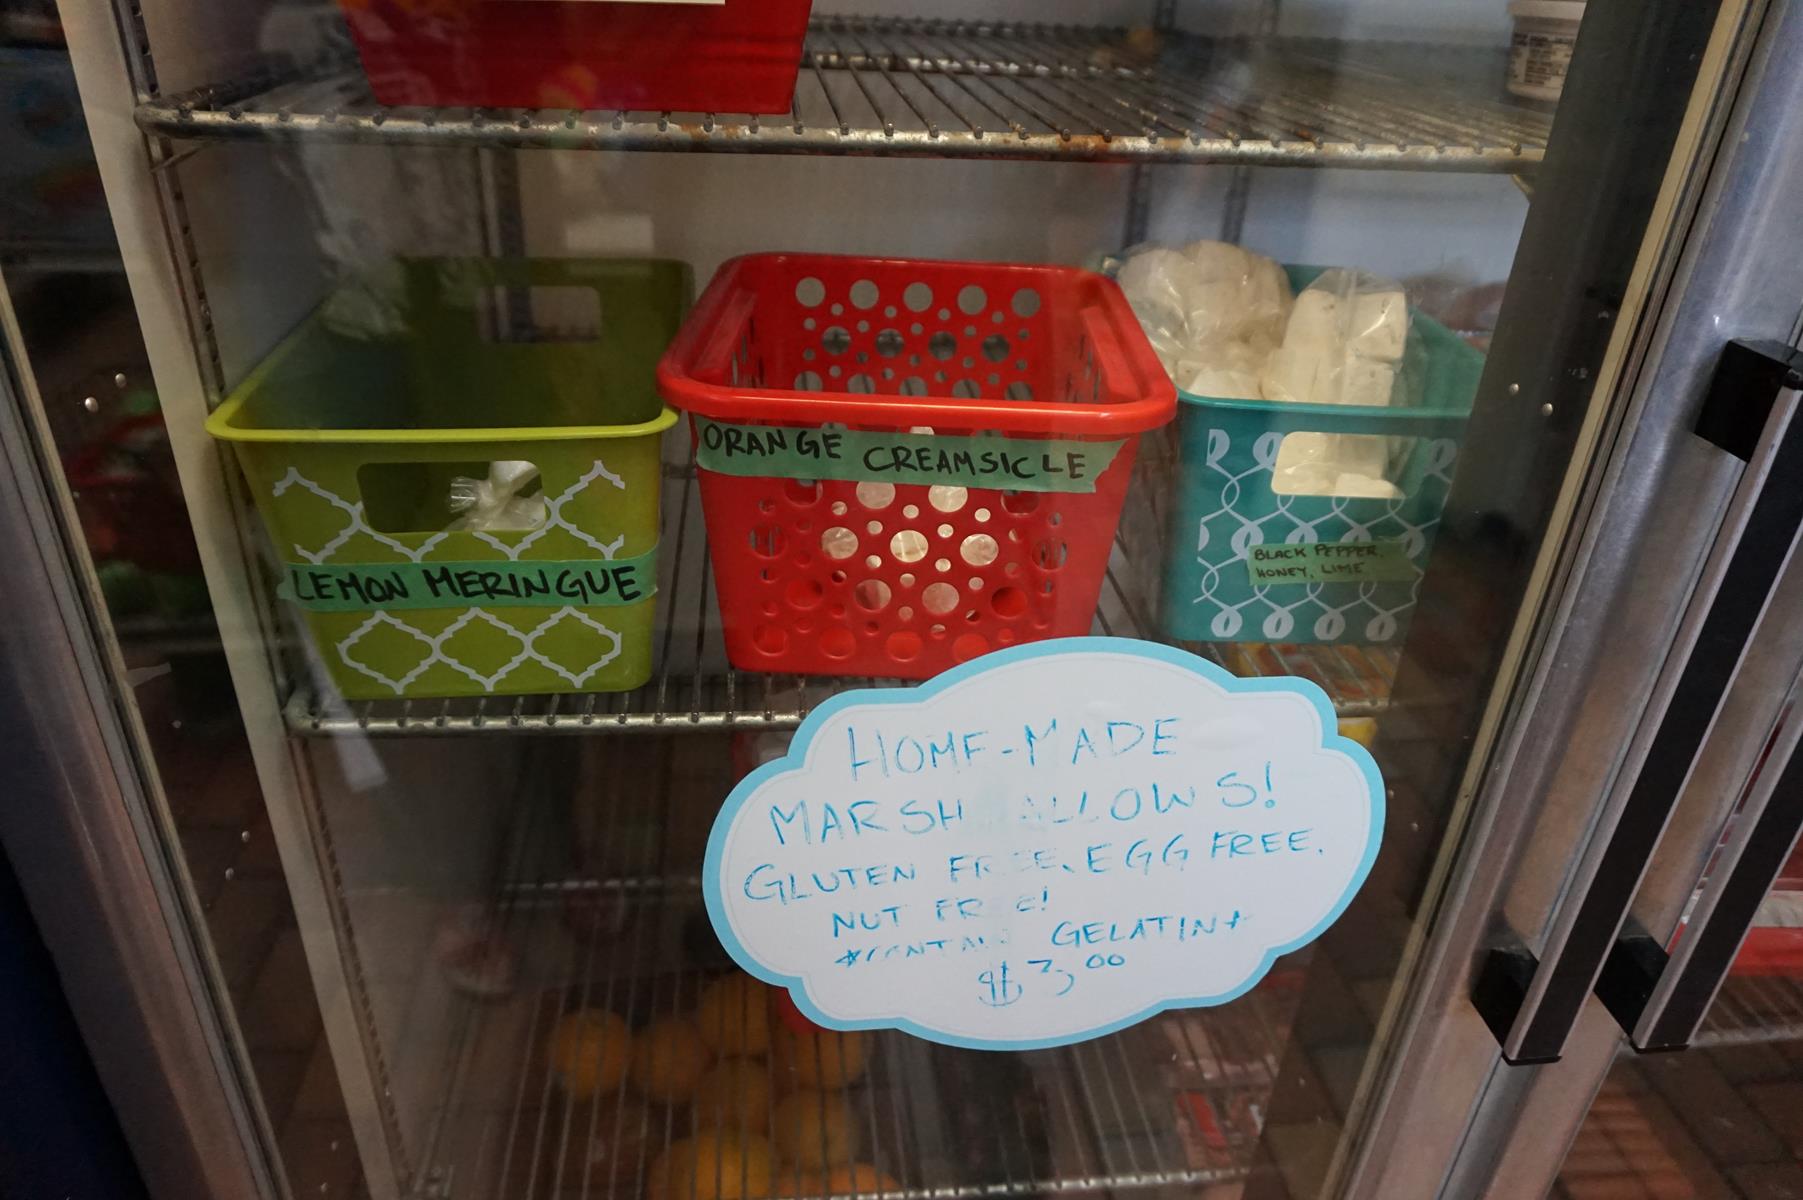 ORANGE CREAMSICLE
LEMON MERINGUE
BLACK PEPPER,
HONEY, LIME
HOME-MADE
MARSHALLOWS!
GLUTEN FREE, EGG FREE,
NUT FREE!
*CONTAINS GELATIN*
$3.00